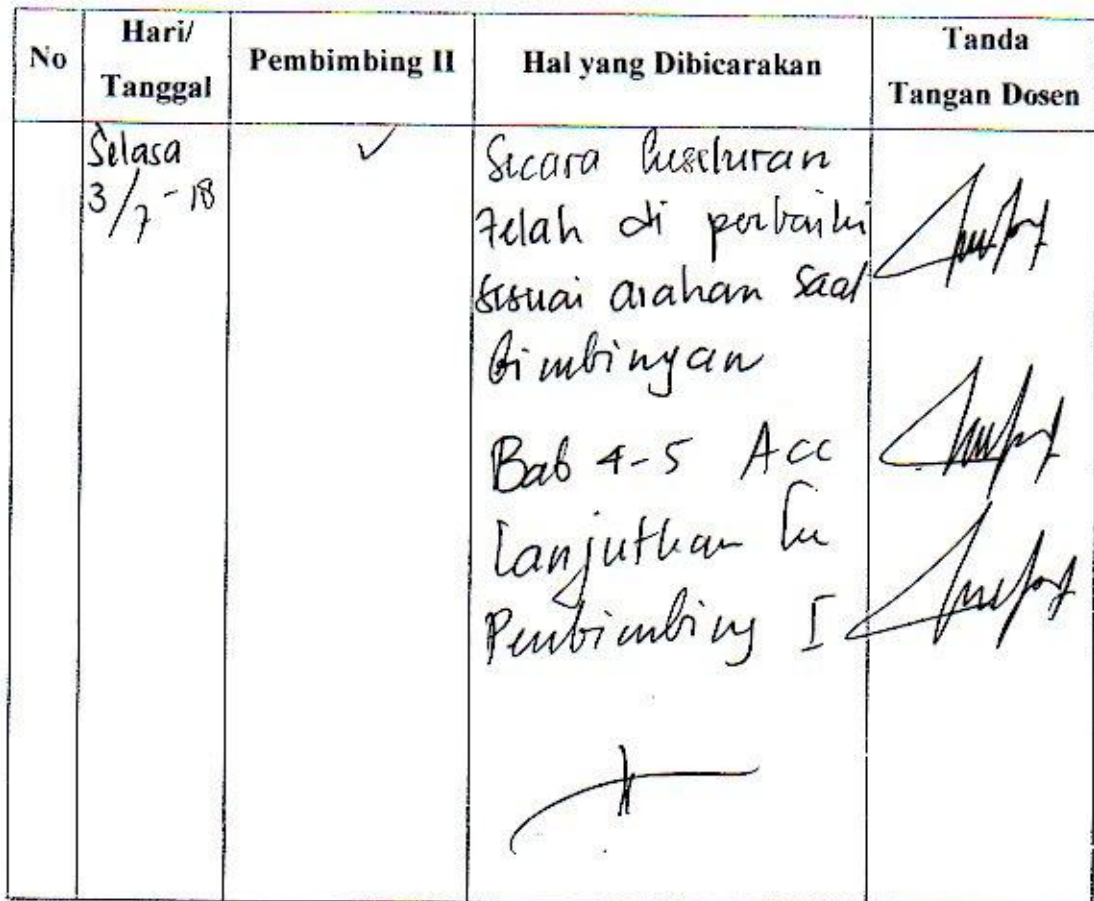 No Hari/ Tanggal Pembimbing II Hal yang Dibicarakan Tanda Tangan Dosen
Selasa ✓ Secara keseluruan
3/7-18 telah di perbaiki
sesuai arahan saat
bimbingan
Bab 4-5 Acc
lanjutkan ke
Pembimbing I